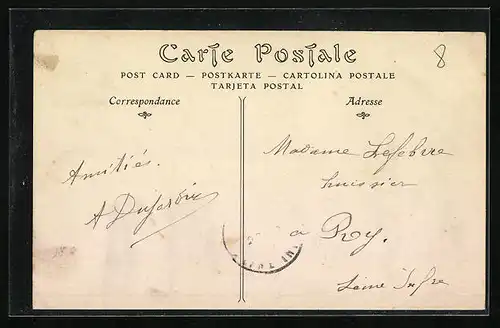 8
Carte Postale
POST CARD — POSTKARTE — CARTOLINA POSTALE
TARJETA POSTAL
Correspondance
Adresse
Amitiés.
A Dujardin
Madame Lefebvre
huissier
à